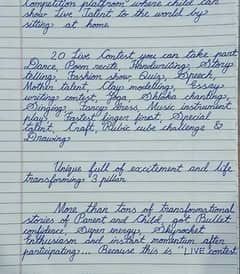 Competition platfrom where child can
show Live Talent to the world by
sitting at home
20 Live Contest you can take part
Dance, Poem recite, Handwriting, Story
telling, Fashion show, Quiz, Speech,
Mother talent, Clay modelling, Essay
writing contest, Yoga, Shloka chanting,
Singing, Fancy Dress, Music instrument
play, Fastest finger first, Special
talent, Craft, Rubic cube challenge &
Drawing
Unique full of excitement and life
transforming 3 pillar
More than tons of transformational
stories of Parent and Child, got Bullet
confidence, Super energy, Skyrocket
Enthusiasm and instant momentum after
participating... Because this is "LIVE contest